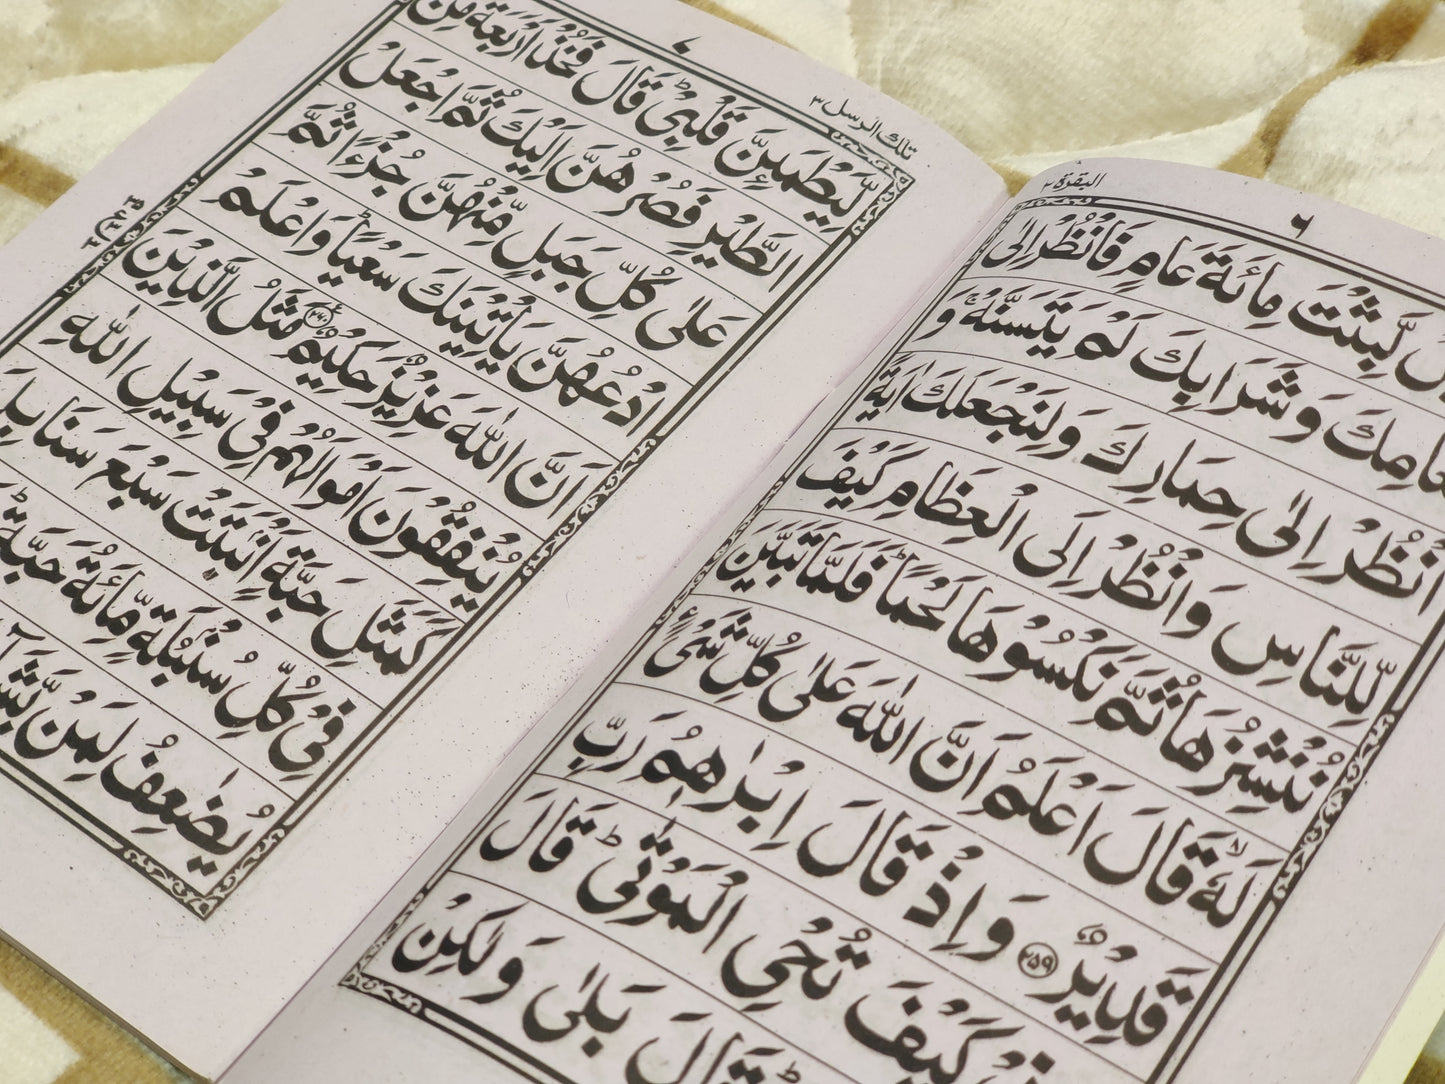 البقرة ٢
٦
لَّبِثْتَ مِائَةَ عَامٍ فَانْظُرْ اِلٰى
وَشَرَابِكَ لَمْ يَتَسَنَّهْ ۚ وَ
انْظُرْ اِلٰى حِمَارِكَ وَلِنَجْعَلَكَ اٰيَةً
لِّلنَّاسِ وَانْظُرْ اِلَى الْعِظَامِ كَيْفَ
نُنْشِزُهَا ثُمَّ نَكْسُوْهَا لَحْمًا ؕ فَلَمَّا تَبَيَّنَ
لَهٗ ۙ قَالَ اَعْلَمُ اَنَّ اللّٰهَ عَلٰى كُلِّ شَىْءٍ
قَدِيْرٌ ﴿٢٥٩﴾ وَاِذْ قَالَ اِبْرٰهٖمُ رَبِّ
كَيْفَ تُحْىِ الْمَوْتٰى ؕ قَالَ
قَالَ بَلٰى وَلٰكِنْ
تلك الرسل ٣
٧
لِّيَطْمَئِنَّ قَلْبِىْ ؕ قَالَ فَخُذْ اَرْبَعَةً مِّنَ
الطَّيْرِ فَصُرْهُنَّ اِلَيْكَ ثُمَّ اجْعَلْ
عَلٰى كُلِّ جَبَلٍ مِّنْهُنَّ جُزْءًا ثُمَّ
ادْعُهُنَّ يَاْتِيْنَكَ سَعْيًا ؕ وَاعْلَمْ
اَنَّ اللّٰهَ عَزِيْزٌ حَكِيْمٌ ﴿٢٦٠﴾ مَثَلُ الَّذِيْنَ
يُنْفِقُوْنَ اَمْوَالَهُمْ فِىْ سَبِيْلِ اللّٰهِ
كَمَثَلِ حَبَّةٍ اَنْۢبَتَتْ سَبْعَ سَنَابِلَ
فِىْ كُلِّ سُنْۢبُلَةٍ مِّائَةُ حَبَّةٍ ؕ
يُضٰعِفُ لِمَنْ